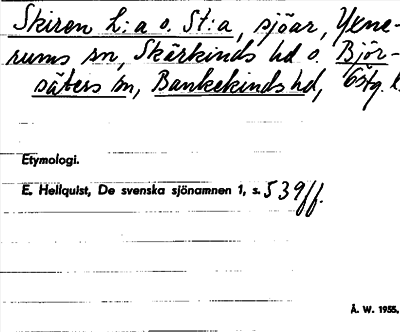 Skiren L:a o. St:a, sjöar, Yxne-
rums sn, Skärkinds hd o. Björ-
säters sn, Bankekinds hd, Östg. l.
Etymologi.
E. Hellquist, De svenska sjönamnen 1, s. 539 ff.
Å. W. 1955.